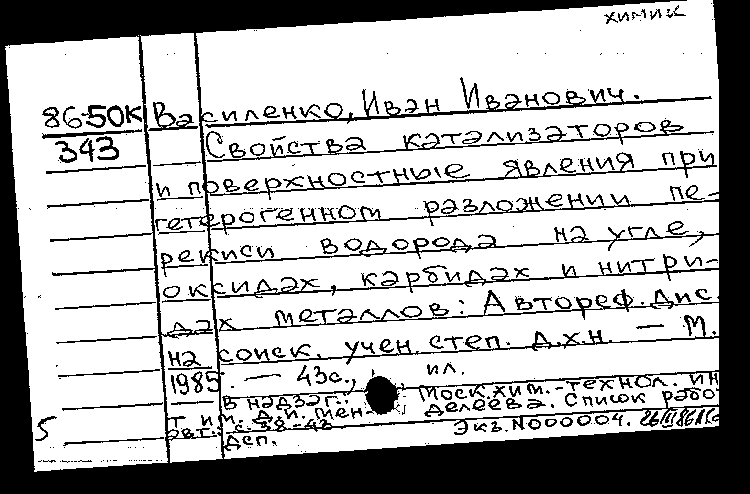 химик
86-50К Василенко, Иван Иванович.
343 Свойства катализаторов
и поверхностные явления при
гетерогенном разложении пе-
рекиси водорода на угле,
оксидах, карбидах и нитри-
дах металлов: Автореф. дис.
на соиск. учен. степ. д.х.н. — М.
1985. — 43с., ил.
В надзаг.: Моск. хим.-технол. ин
т им. Д.И. Менделеева. Список рабо
5 авт.: с. 38-43
Деп. Экз. N000004.